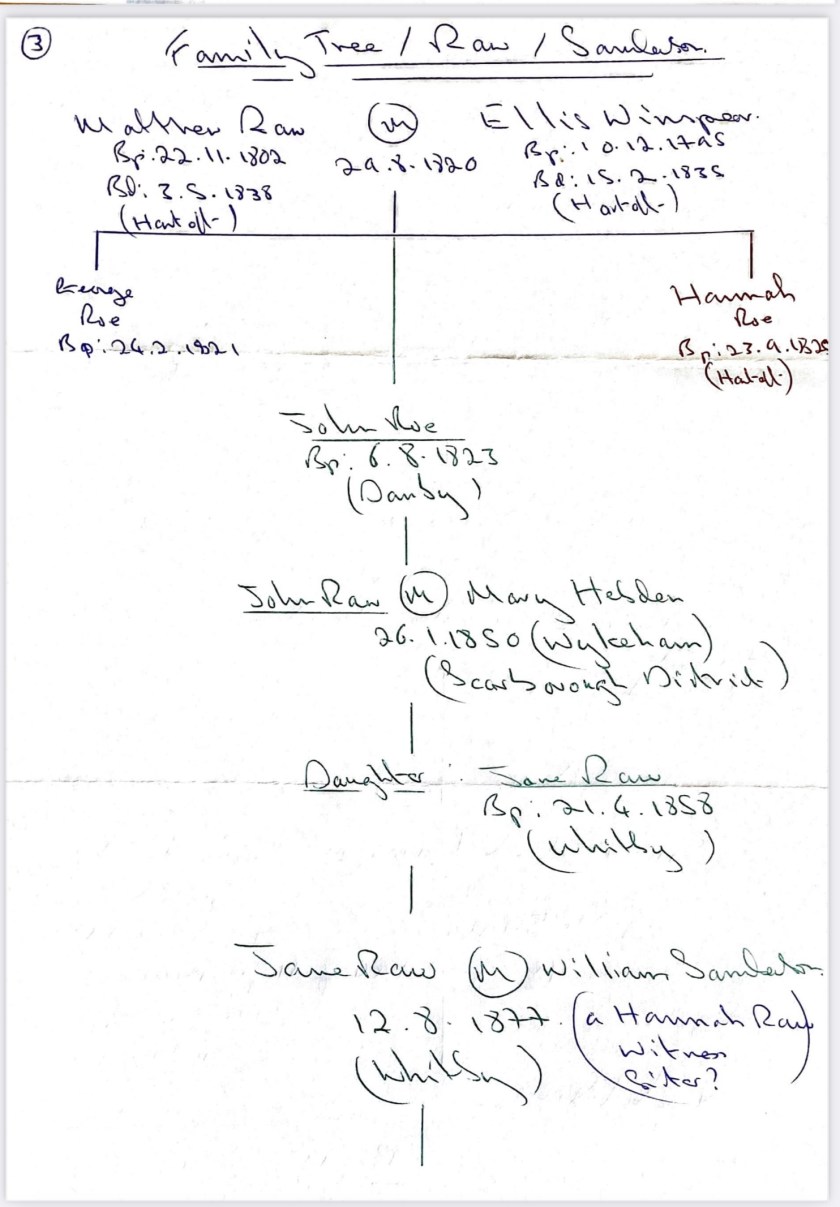 3
Family Tree / Raw / Sanderson.
Matthew Raw (m) Ellis Winspear.
Bp: 22.11.1802 29.8.1820 Bp: 10.12.1795
Bd: 3.5.1838 Bd: 15.2.1835
(Hartoft) (Hartoft)
George Hannah
Roe Roe
Bp: 24.2.1821 Bp: 23.9.1825
(Hartoft)
John Roe
Bp: 6.8.1823
(Danby)
John Raw (m) Mary Hebden
26.1.1850 (Wykeham)
(Scarborough District)
Daughter: Jane Raw
Bp: 21.4.1858
(Whitby)
Jane Raw (m) William Sanderson.
12.8.1877. (a Hannah Raw
Witness
(Whitby) Sister?)